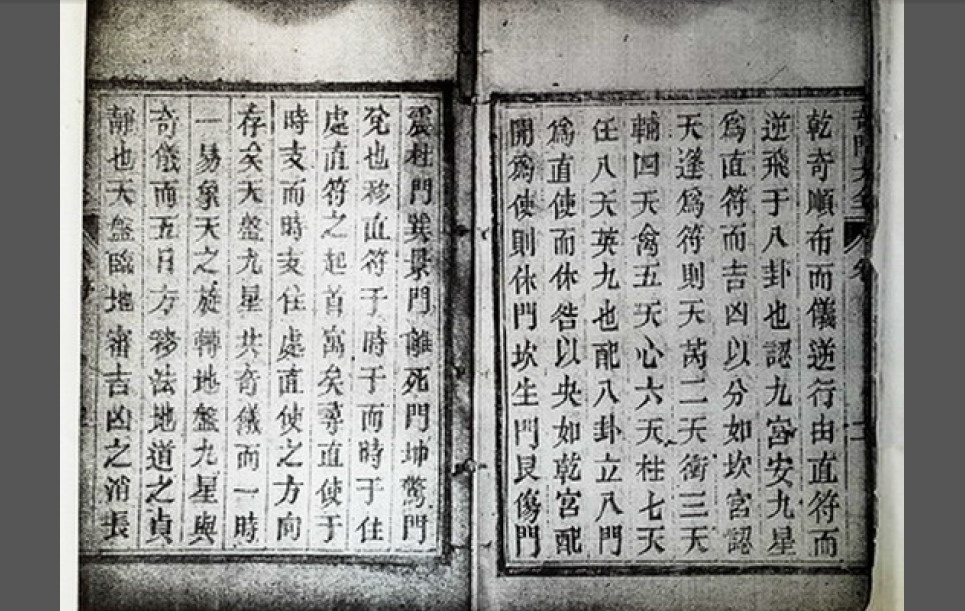 乾奇順布而儀逆行由直符而
逆飛于八卦也認九宮安九星
爲直符而吉凶以分如坎宮認
天逢爲符則天芮二天衝三天
輔四天禽五天心六天柱七天
任八天英九也配八卦立八門
爲直使而休咎以央如乾宮配
開爲使則休門坎生門艮傷門
震杜門巽景門離死門坤驚門
兌也移直符于時干而時干住
處直符之起首寓矣尋直使于
時支而時支住處直使之方向
存矣天盤九星共奇儀而一時
一易象天之旋轉地盤九星與
奇儀而五日方移法地道之貞
靜也天盤臨地審吉凶之消長